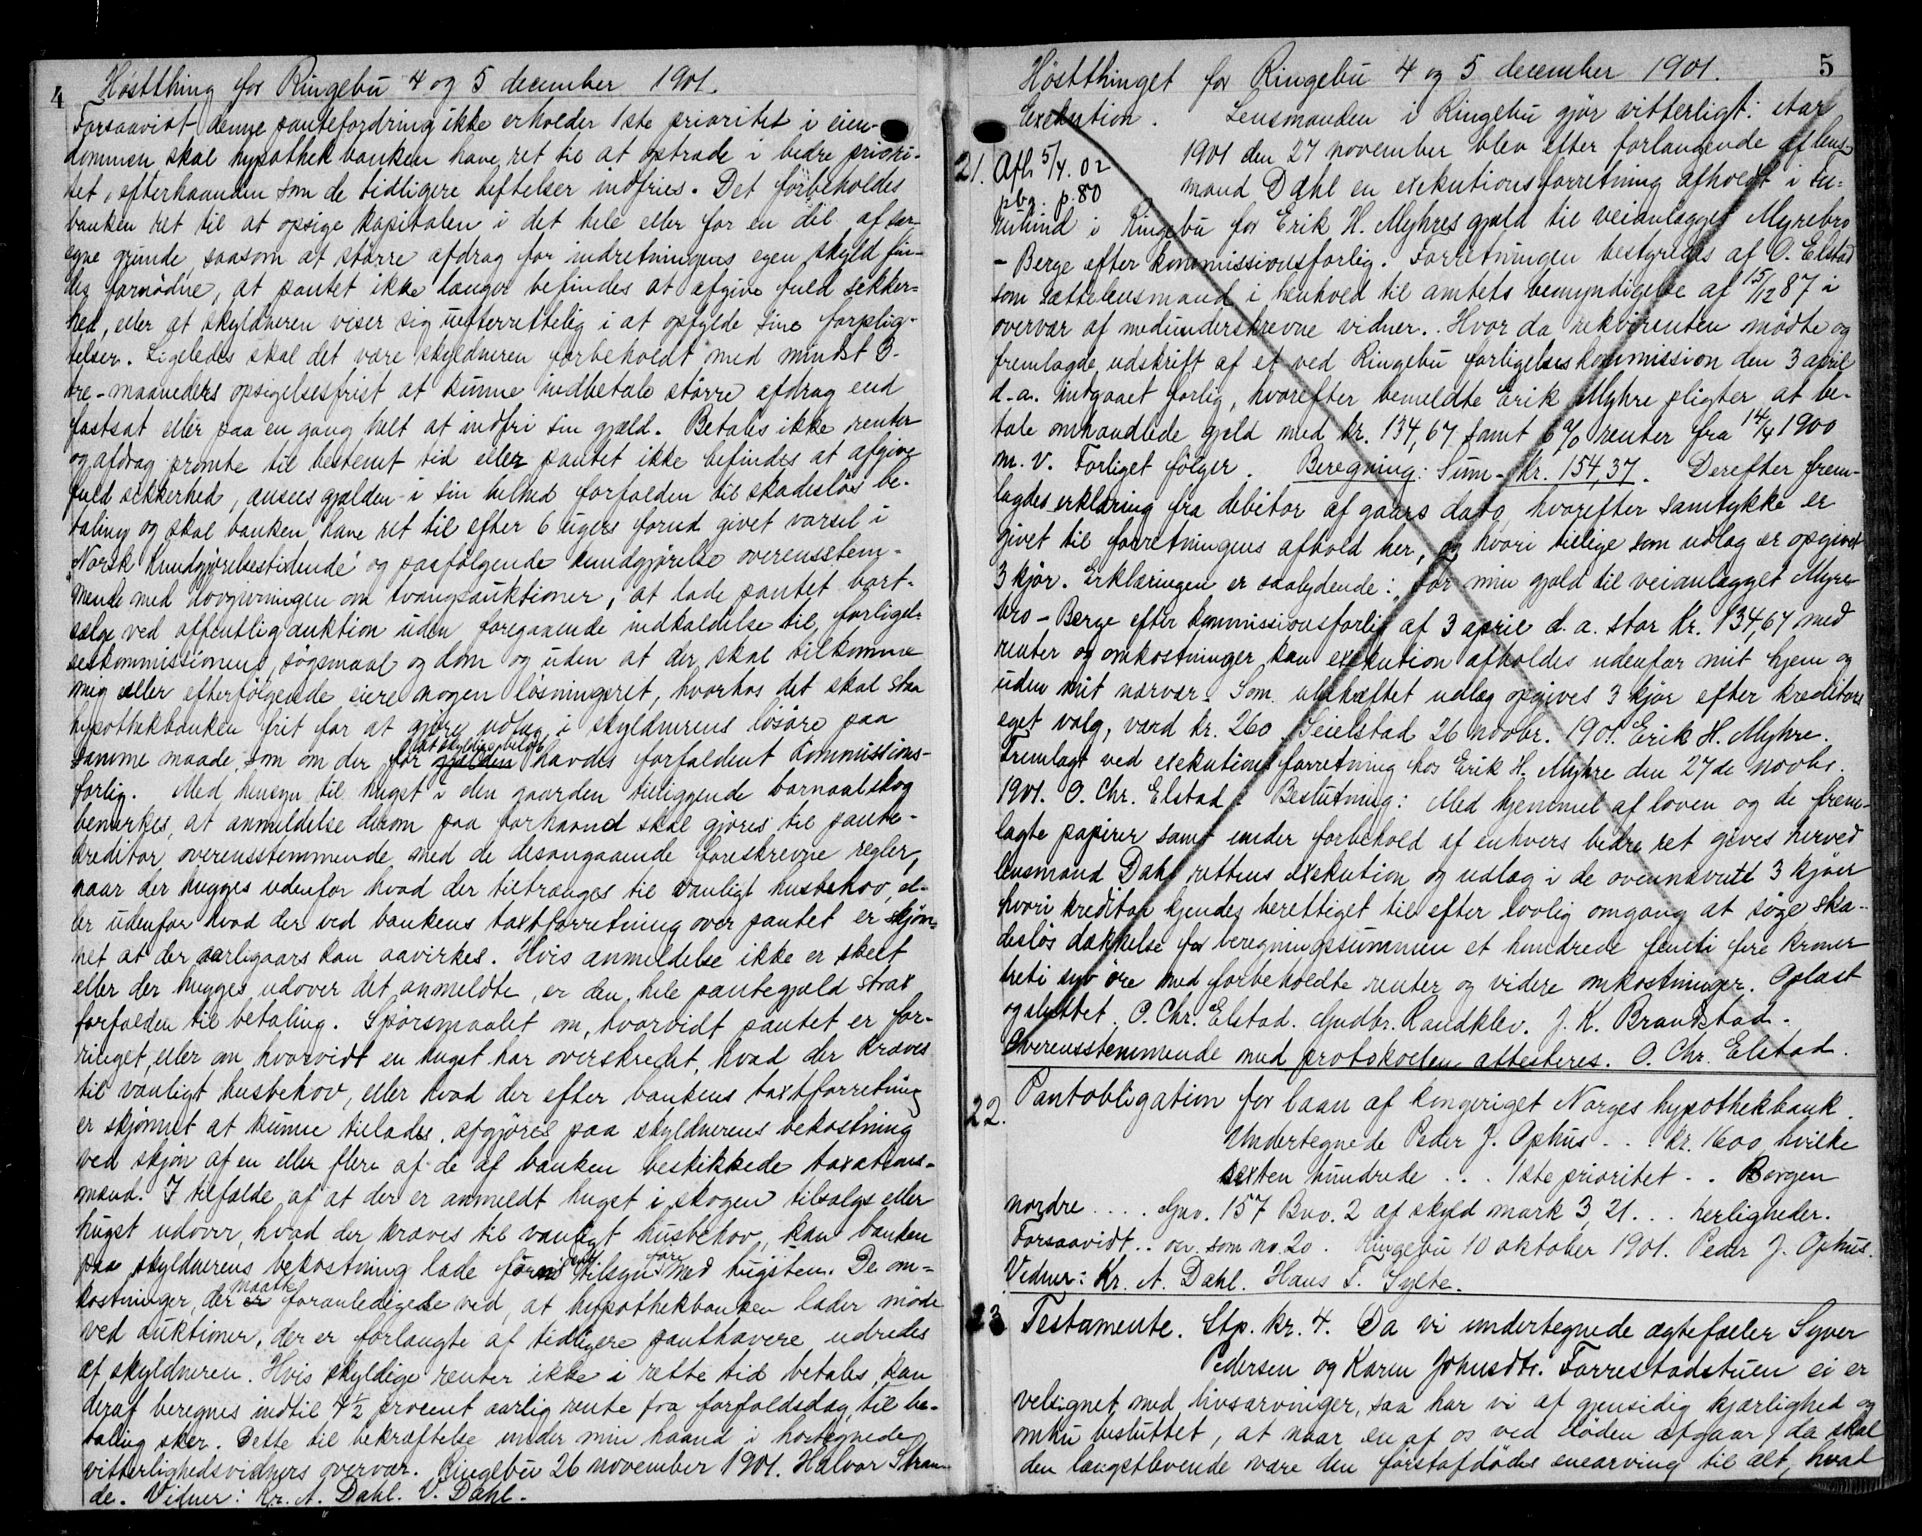 4
Høstthing for Ringebu 4 og 5 december 1901.
Forsaavidt denne pantefordring ikke erholder 1ste prioritet i eien-
dommen skal hypothekbanken have ret til at optræde i bedre priori-
tet, efterhaanden som de tidligere heftelser indfries. Det forbeholdes
banken ret til at opsige kapitalen i det hele eller for en del af sær-
egne grunde, saasom at større afdrag for indretningens egen skyld fin-
des fornødne, at pantet ikke længer befindes at afgive fuld sikker-
hed, eller at skyldneren viser sig uefterrettelig i at opfylde sine forplig-
telser. Ligeledes skal det være skyldneren forbeholdt med mindst 3-
tre-maaneders opsigelsesfrist at kunne indbetale større afdrag end
fastsat eller paa en gang helt at indfri sin gjæld. Betales ikke renter
og afdrag promte til bestemt tid eller pantet ikke befindes at afgive
fuld sikkerhed, ansees gjælden i sin helhed forfalden til skadesløs be-
taling og skal banken have ret til efter 6 ugers forud givet varsel i
"Norsk Kundgjørelsestidende" og paafølgende kundgjørelse overensstem-
mende med lovgivningen om tvangsauktioner, at lade pantet bort-
sælge ved offentlig auktion uden foregaaende indkaldelse til forligel-
seskommissionens, søgsmaal og dom og uden at der skal tilkomme
mig eller efterfølgende eiere nogen løsningsret, hvorhos det skal staa
hypothekbanken frit for at gjøre udlæg i skyldnerens løsøre paa
samme maade, som om der for det skyldige beløb havdes forfaldent kommissions-
forlig. Med hensyn til hugst i den gaarden tilliggende barnaalskog
bemærkes, at anmeldelse derom paa forhaand skal gjøres til pante-
kreditor overensstemmende med de desangaaende foreskrevne regler,
naar der hugges udenfor hvad der tiltrænges til vanligt husbehov, el-
ler udenfor hvad der ved bankens taxtforretning over pantet er skjøn-
net at der aarligaars kan aavirkes. Hvis anmeldelse ikke er skeet
eller der hugges udover det anmeldte, er den hele pantegjæld strax
forfalden til betaling. Spørsmaalet om, hvorvidt pantet er for-
ringet, eller om hvorvidt en hugst har overskredet, hvad der kræves
til vanligt husbehov, eller hvad der efter bankens taxtforretning
er skjønnet at kunne tillades, afgjøres paa skyldnerens bekostning
ved skjøn af en eller flere af de af banken beskikkede taxations-
mænd. I tilfælde af at der er anmeldt hugst i skogen tilsalgs eller
hugst udover, hvad der kræves til vanligt husbehov, kan banken
paa skyldnerens bekostning lade føre tilsyn med hugsten. De om-
kostninger, der maatte foranledigede ved, at hypothekbanken lader møde
ved auktioner, der er forlangte af tidligere panthavere udredes
af skyldneren. Hvis skyldige renter ikke i rette tid betales kan
deraf beregnes indtil 4½ procent aarlig rente fra forfaldsdag til be-
taling sker. Dette til bekræftelse under min haand i hostegnede
vitterlighedsvidners overvær. Ringebu 26 november 1901. Halvor Stran-
de. Vidner: Kr. A. Dahl. V. Dahl.
Høstthinget for Ringebu 4 og 5 december 1901. 5
Exekution. Lensmanden i Ringebu gjør vitterligt: Aar
21. Afl. 5/4. 02 1901 den 27 november blev efter forlangende af lens-
pbg. p. 80 mand Dahl en exekutionsforretning afholdt i
i Ringebu for Erik H. Myhres gjæld til veianlægget Myrebro
- Berge efter kommissionsforlig. Forretningen bestyredes af O. Elstad
som sættelensmand i henhold til amtets bemyndigelse af 15/12 87 i
overvær af medunderskrevne vidner. Hvor da rekvirenten mødte og
fremlagde udskrift af et ved Ringebu forligelseskommission den 3 april
d.a. indgaaet forlig, hvorefter bemeldte Erik Myhre pligter at be-
tale omhandlede gjæld med kr. 134,67 samt 6% renter fra 14/4 1900
m. v. Forliget følger. Beregning: Sum - kr. 154,37. Derefter frem-
lagdes erklæring fra debitor af gaars dato, hvorefter samtykke er
givet til forretningens afhold her, og hvori tillige som udlæg er opgivet
3 kjør. Erklæringen er saalydende: "For min gjæld til veianlægget Myre-
bro - Berge efter kommissionsforlig af 3 april d.a. stor kr. 134,67 med
renter og omkostninger kan exekution afholdes udenfor mit hjem og
uden mit nærvær. Som ubehæftet udlæg opgives 3 kjør efter kreditors
eget valg, værd kr. 260. Seielstad 26 novbr. 1901. Erik H. Myhre.
Fremlagt ved exekutionsforretning hos Erik H. Myhre den 27de novbr.
1901. O. Chr. Elstad. Beslutning: Med hjemmel af loven og de frem-
lagte papirer samt under forbehold af enhvers bedre ret gives herved
lensmand Dahl rettens exekution og udlæg i de ovennævnte 3 kjøer
hvori kreditor kjendes berettiget til efter lovlig omgang at søge ska-
desløs dækkelse for beregningssummen et hundrede femti fire kroner
treti syv øre med forbeholdte renter og videre omkostninger. Oplæst
og sluttet. O. Chr. Elstad. Gudbr. Randklev. J. K. Brandstad.
Overensstemmende med protokollen attesteres. O. Chr. Elstad.
22. Pantobligation for laan af kongeriget Norges hypothekbank.
Undertegnede Peder J. Ophus .. kr. 1600 hvilke
sexten hundrede ... 1ste prioritet .. Borgen
nordre .... Gno. 157 Bno. 2 af skyld mark 3,21 ... herligheder.
Forsaavidt .. ov. som no. 20. Ringebu 10 oktober 1901. Peder J. Ophus.
Vidner: Kr. A. Dahl. Hans T. Sylte.
23 Testamente. Stp. kr. 4. Da vi undertegnede ægtefæller Syver
Pedersen og Karen Johnsdtr. Forrestadstuen ei er
velsignet med livsarvinger, saa har vi af gjensidig kjærlighed og
omhu besluttet, at naar en af os ved døden afgaar, da skal
den længstlevende være den førstafdødes enearving til alt, hvad